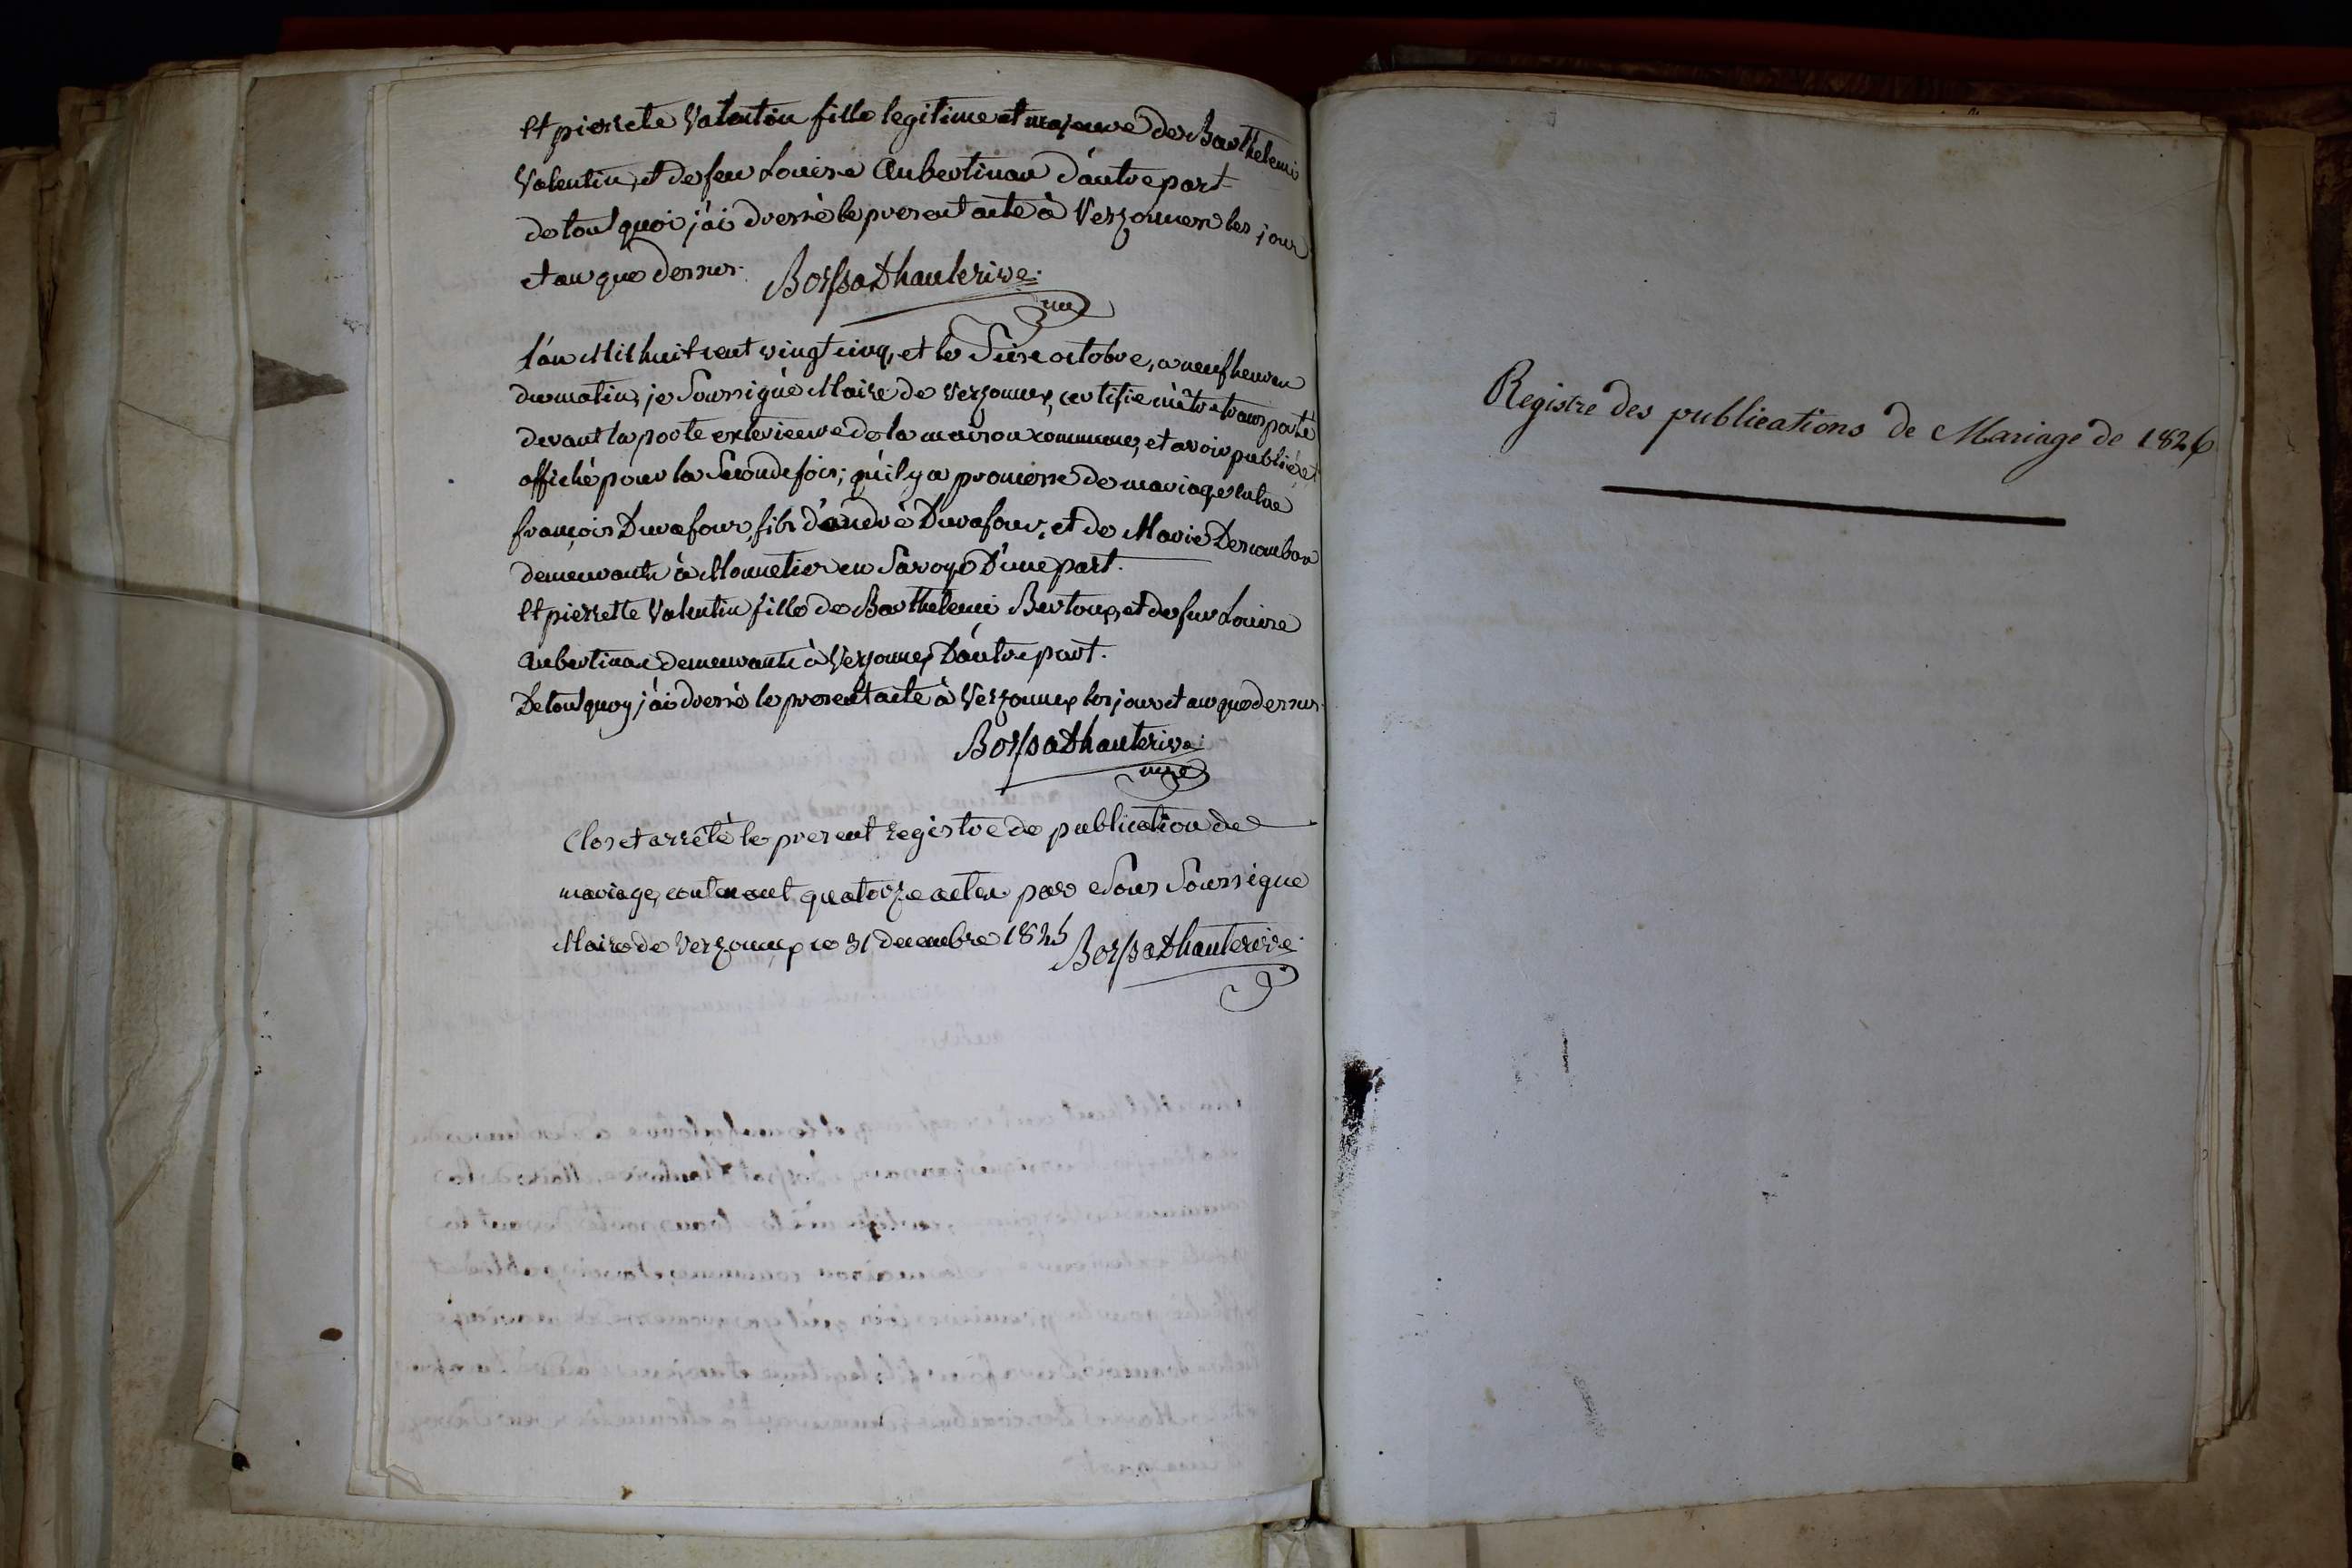 Et pierrete Valentin fille legitime et majeure de Barthelemi
Valentin, et de feue Louise Aubertinan d'autre part
de tout quoi j'ai dressé le present acte à Versonnex les jour
et an que dessus. Borssat Dhauterive.
l'an Mil huit cent vingt cinq, et le Seise octobre, a neuf heures
du matin, je Soussigné Maire de Versonnex, certifie m'être transporté
devant la porte exterieure de la maison commune, et avoir publié et
affiché pour la Seconde fois; qu'il y a promesse de mariage entre
françois Durafour, fils d'andré Durafour, et de Marie
demeurants à Monnetier en Savoye D'une part.
Et pierrette Valentin fille de Barthelemi et de feue Louise
Aubertinan demeurante à Versonnex D'autre part.
De tout quoy j'ai dressé le present acte à Versonnex les jour et an que dessus.
Borssat Dhauterive
mre
Clos et arrêté le present registre de publication de
mariage, contenant quatorze actes par Nous Soussigné
Maire de Versonnex ce 31 decembre 1825 Borssat Dhauterive
Registre des publications de Mariage de 1826